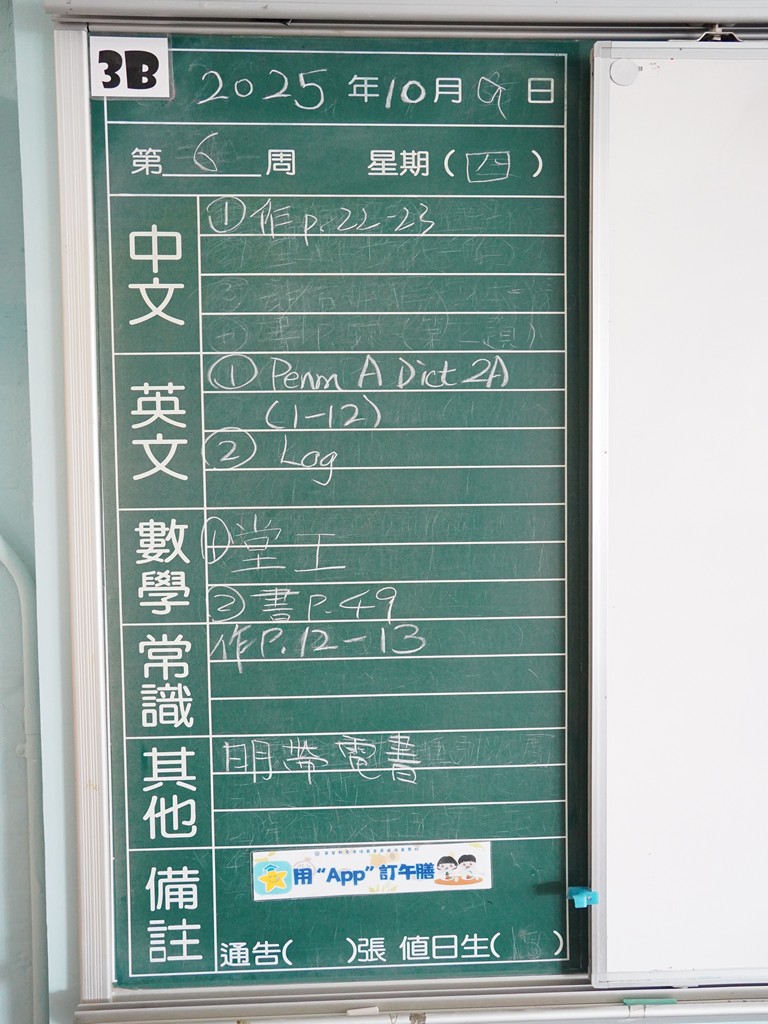 3B
2025 年10月9日
第 6 周 星期(四)
中文
①作p.22-23
英文
① Penm A Dict 2A
(1-12)
② Log
數學
①堂工
②書P.49
常識
作P.12-13
其他
明帶電書
備註
用“App”訂午膳
通告( )張 值日生( )